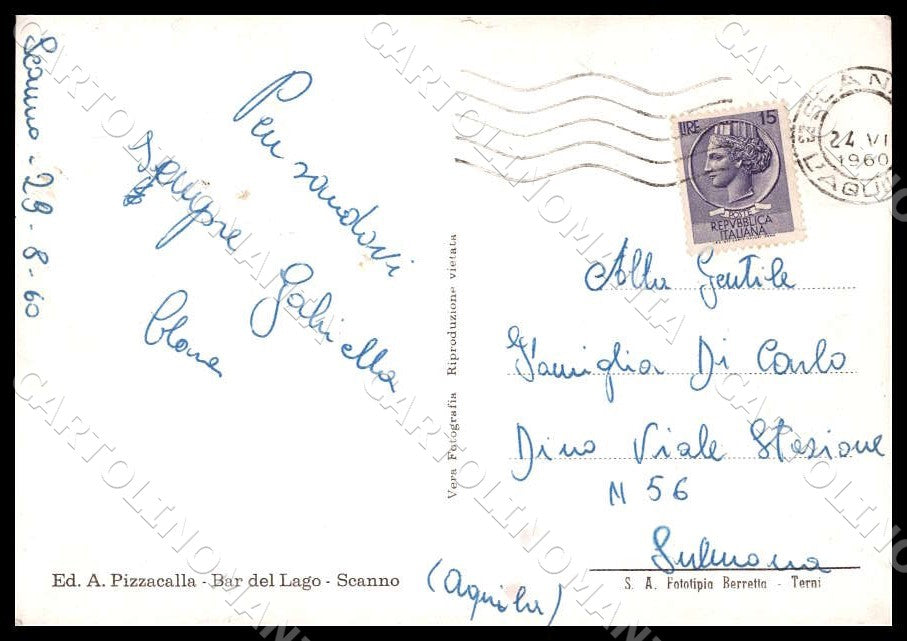 Scanno - 29-8-60
Pensandovi
sempre
Gabriella
LIRE 15
POSTE
REPVBBLICA
ITALIANA
24 VI
1960
L'AQUI
Alla Gentile
Famiglia Di Carlo
Dino Viale Stazione
N 56
Sulmona
(Aquila)
Vera Fotografia Riproduzione vietata
Ed. A. Pizzacalla - Bar del Lago - Scanno
S. A. Fototipia Berretta - Terni
CARTOLINOMANIA